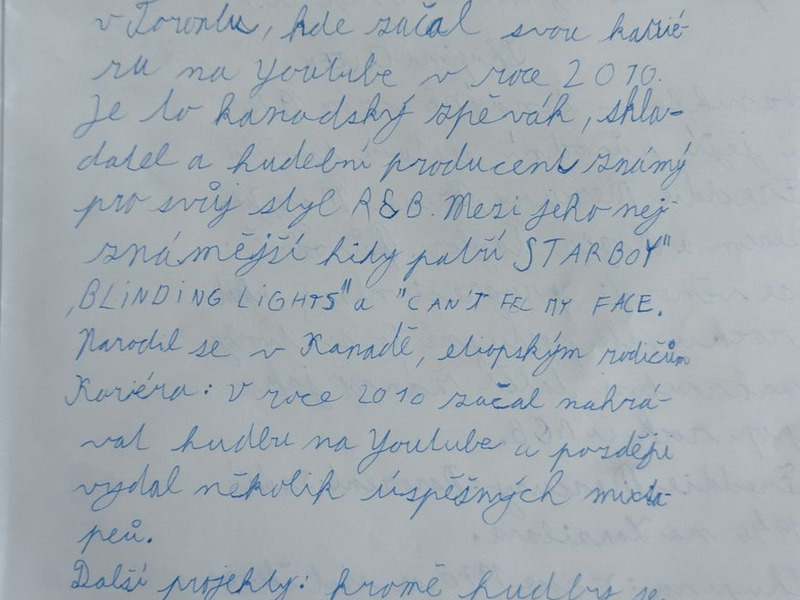 v Torontu, kde začal svou karié-
ru na Youtube v roce 2010.
Je to kanadský zpěvák, skla-
datel a hudební producent známý
pro svůj styl R&B. Mezi jeho nej-
známější hidy patří STARBOY"
„BLiNDiNG LiGHTS" a "CAN'T FEL MY FACE.
Narodil se v Kanadě, etiopským rodičům
Kariéra: V roce 2010 začal nahrá-
vat hudbu na Youtube a později
vydal několik úspěšných mixta-
peů.
Další projekty: kromě hudby se